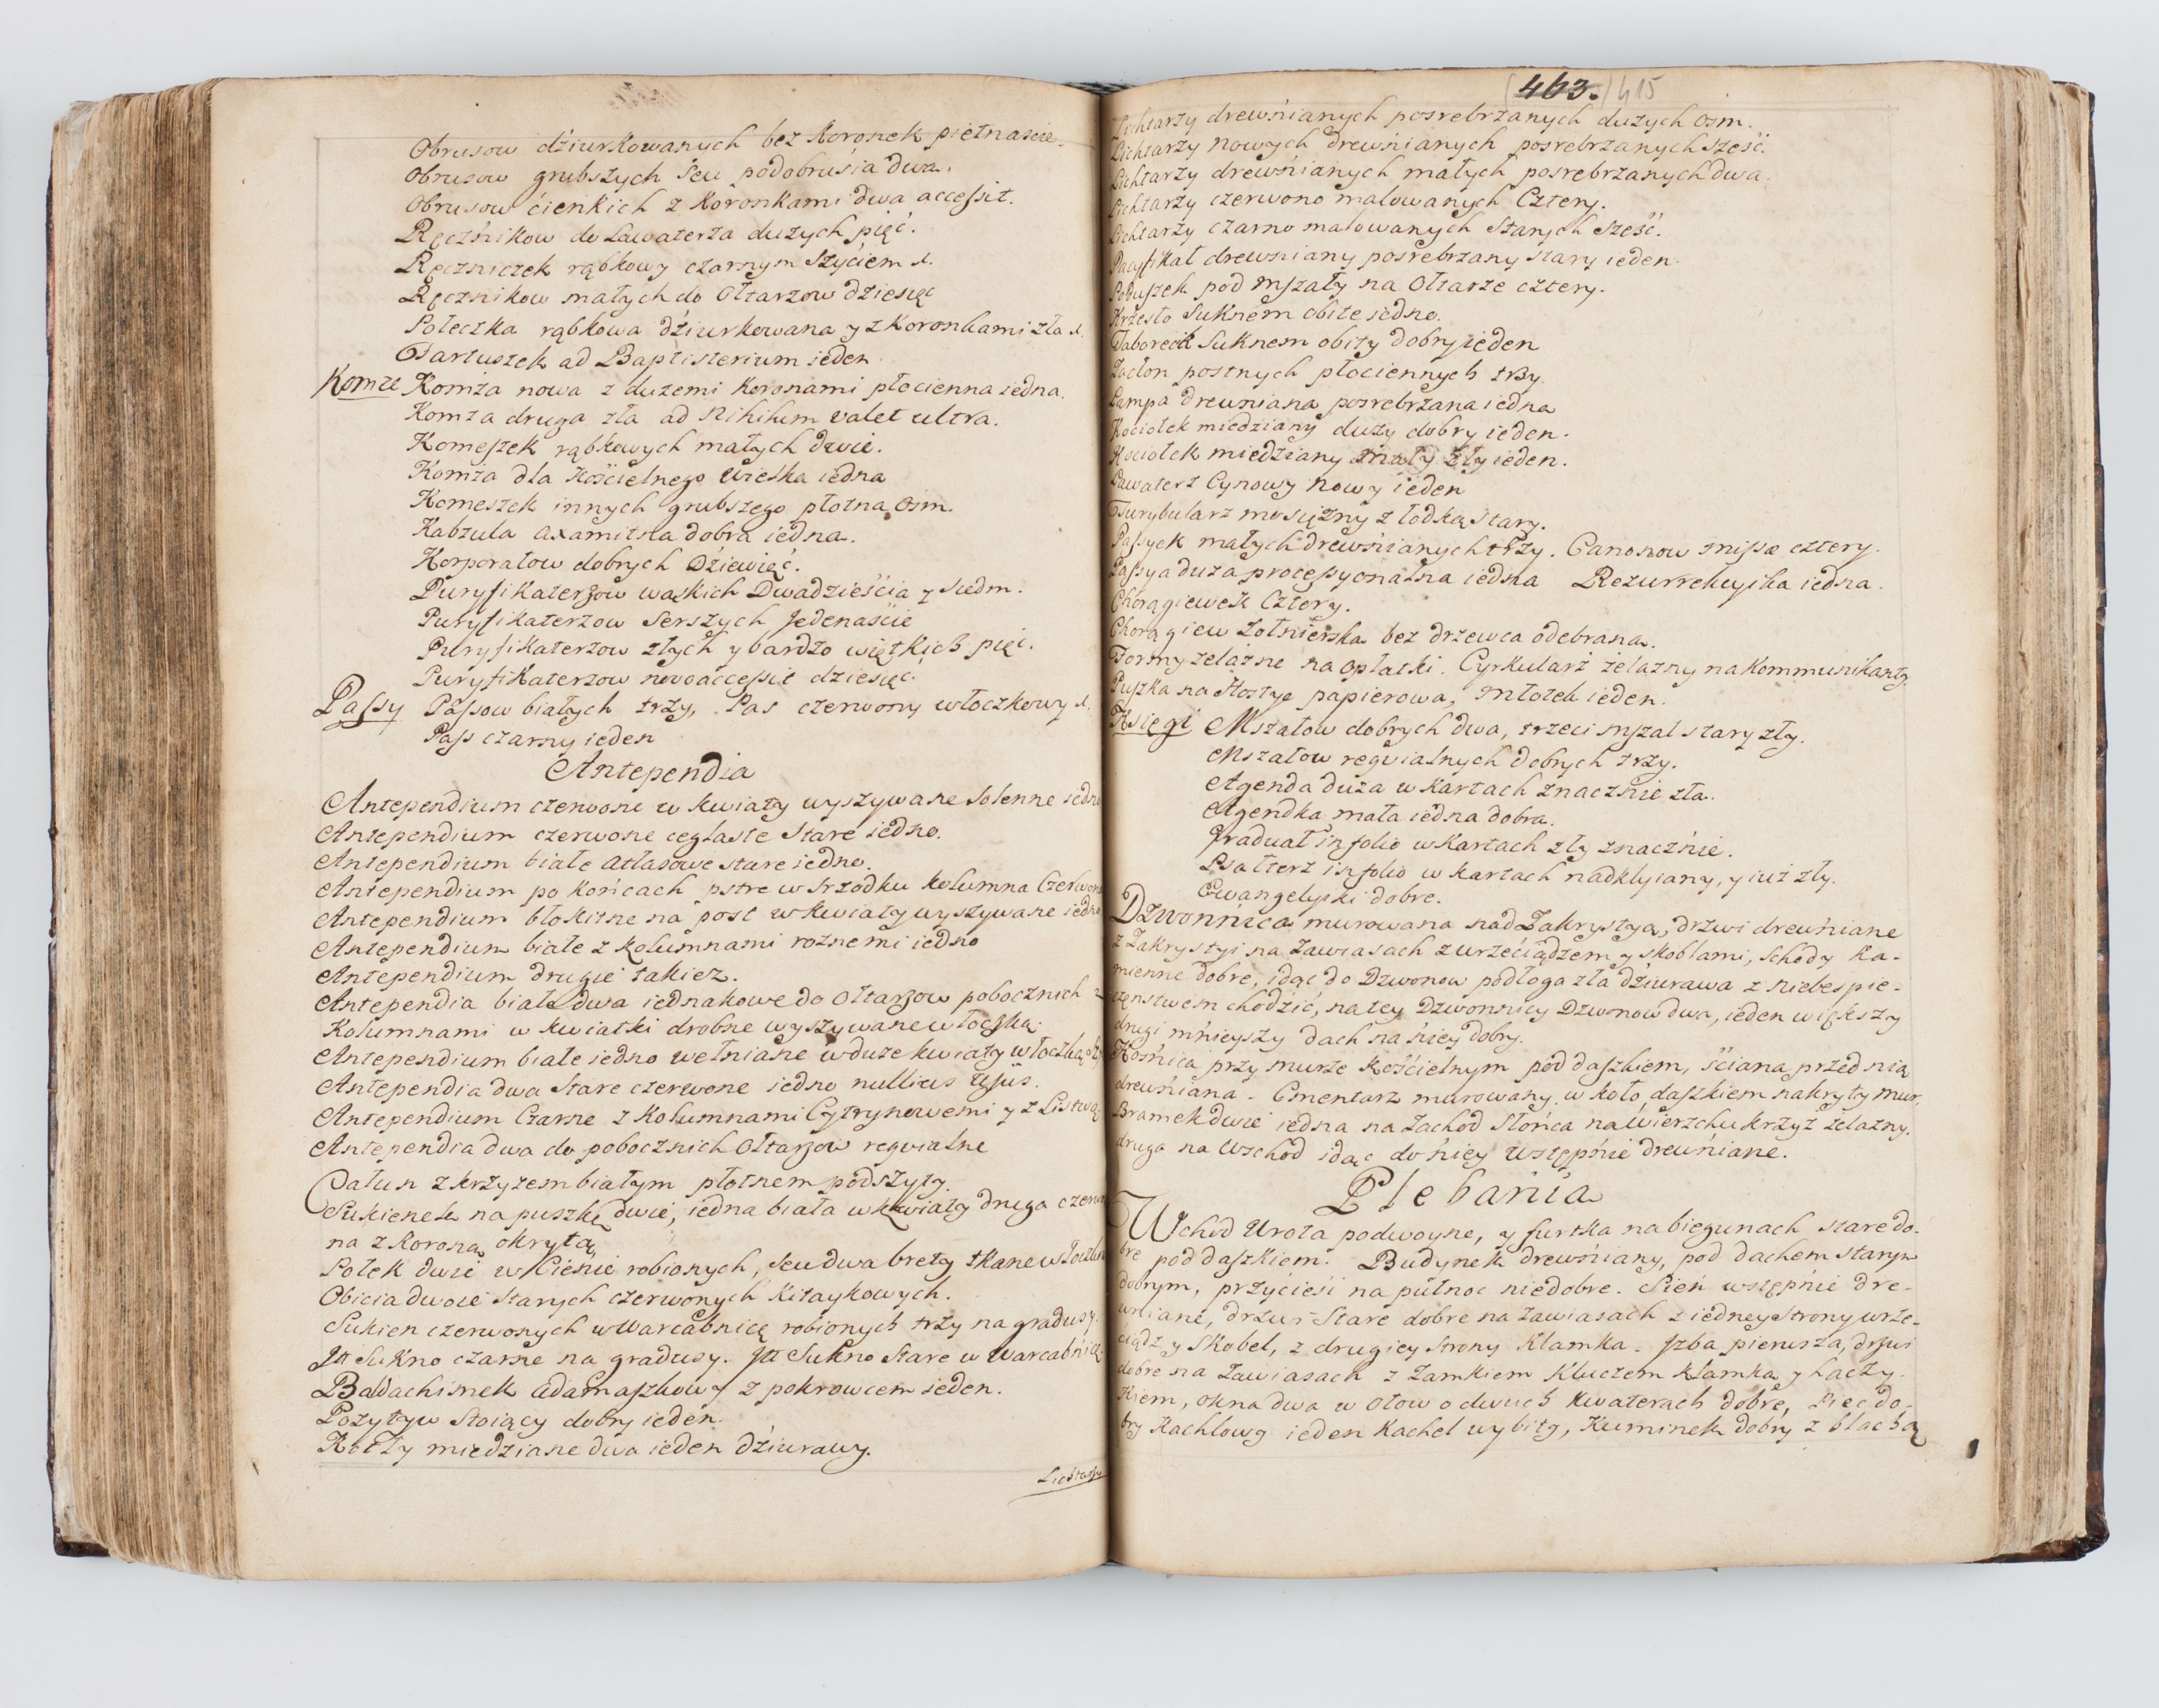 Obrusow dźiurkowanych bez Koronek piętnascie.
Obrusow grubszych seu podobrusia dwa.
Obrusow ćienkich z Koronkami dwa accessit.
Ręcznikow do Lawaterza duzych pięć.
Ręczniczek rąbkowy czarnym Szyciem 1.
Ręcznikow małych do Ołtarzow dziesięć
Poleczka rąbkowa dźiurkowana y z Koronkami zła 1.
Fartuszek ad Baptisterium ieden.
Komze Komża nowa z duzemi Koronami płocienna iedna.
Komza druga zła ad Nihilum valet ultra.
Komeszek rąbkowych małych dwie.
Komża dla Kośćielnego Wieska iedna
Komeszek innych grubszego płotna osm.
Kabzula axamitna dobra iedna.
Korporałow dobrych Dźiewięć.
Puryfikaterzow wąskich Dwadzieśćia y siedm.
Puryfikaterzow Serszych Jedenaśćie
Puryfikaterzow złych y bardzo więtkich pięć.
Puryfikaterzow novo accessit dziesięć.
Passy Passow białych trzy, Pas czerwony włoczkowy 1.
Pass czarny ieden
Antependia
Antependium czerwone w kwiaty wyszywane Solenne iedno
Antependium czerwone ceglaste Stare iedno.
Antependium białe atłasowe stare iedno.
Antependium po Końcach pstre w Srzodku kolumna Czerwona
Antependium błokitne na post w kwiaty wyszywane iedno
Antependium białe z kolumnami roznemi iedno
Antependium drugie takiez.
Antependia białe dwa iednakowe do Ołtarzow pobocznich z
Kolumnami w kwiatki drobne wyszywane włoczką.
Antependium białe iedno wełniane w duże kwiaty włoczką
Antependia dwa Stare czerwone iedno nullius Usus.
Antependium Czarne z Kolumnami Cytrynowemi y z Listwą
Antependia dwa do pobocznich Ołtarzow reqvialne
Całun z krzyzem białym płotnem podszyty.
Sukienek na puszkę dwie, iedna biała w kwiaty druga czerwo
na z Koroną okryta,
Polek dwie w Cienie robionych, seu dwa brety tkane włoczką
Obicia dwoie Starych czerwonych Kitaykowych.
Sukien czerwonych w Warcabnicę robionych trzy na gradusy.
Itt Sukno czarne na gradusy. Itt Sukno Stare w Warcabnicę
Baldachimek adamaszkowy z pokrowcem ieden.
Pozytyw Stoiący dobry ieden.
Kotły miedziane dwa ieden dźiurawy.
Lichtarzy
463. 415
Lichtarzy drewnianych posrebrzanych duzych osm.
Lichtarzy nowych drewnianych posrebrzanych Sześć.
Lichtarzy drewnianych małych posrebrzanych dwa.
Lichtarzy czerwono malowanych Cztery.
Lichtarzy czarno malowanych Starych Sześć.
Pacyfikał drewniany posrebrzany stary ieden.
Poduszek pod mszały na Ołtarze cztery.
Krzesło Suknem obite iedno.
Taborecik Suknem obity dobry ieden
Zasłon postnych płociennych trzy.
Lampa drewniana posrebrzana iedna
Kociołek miedziany duzy dobry ieden.
Kociołek miedziany mały zły ieden.
Lawaterz Cynowy Nowy ieden
Turybularz mosiężny z łodką Stary.
Passyek małych drewnianych trzy. Canonow missæ cztery.
Passya duza processyonalna iedna Rezurrekcyika iedna.
Chorągiewek Cztery.
Chorągiew Zołnierska bez drzewca odebrana.
Formy zelázne na opłatki. Cyrkularz żelazny na Kommunikanty.
Puszka na Hostye papierowa, Młotek ieden.
Księgi Mszałow dobrych dwa, trzeci mszal stary zły.
Mszałow reqvialnych dobrych trzy.
Agenda duza w Kartach znacznie zła.
Agendka mała iedna dobra.
Graduał in folio w Kartach zły znacznie.
Psałterz in folio w Kartach nadkliiany, y iuż zły.
Ewangelyiki dobre.
Dzwonnica murowana nad Zakrystyą, drzwi drewniane
z Zakrystyi na Zawiasach z wrzeciądzem y skoblami, Schody Ka-
mienne dobre, idąc do Dzwonow podłoga zła dźiurawa z niebespie-
częnstwem chodzić, na tey Dzwonnicy Dzwonow dwa, ieden większy
drugi mnieyszy dach na niey dobry.
Kośnica przy murze Kośćielnym pod daszkiem, śćiana przednia
drewniana. Cmentarz murowany, w koło daszkiem nakryty mur,
Bramek dwie iedna na Zachod Słońca na Wierzchu krzyż żelazny.
druga na Wschod idąc do niey wstępnie drewniane.
Plebania
Wchod Wrota podwoyne, y furtka na biegunach stare do-
bre pod daszkiem. Budynek drewniany, pod dachem starym
dobrym, przyćieśi na pułnoc niedobre. Sień wstępnie dre-
wniane, drzwi Stare dobre na zawiasach z iedney Strony wrze-
ciądz y Skobel, z drugiey Strony Klamka. Izba pierwsza, drzwi
dobre na Zawiasach z Zamkiem Kluczem Klamką y haczy-
kiem, okna dwa w ołow o dwuch Kwaterach dobre, Piec do-
bry Kachlowy ieden Kachel wybity, Kuminek dobry z blachą